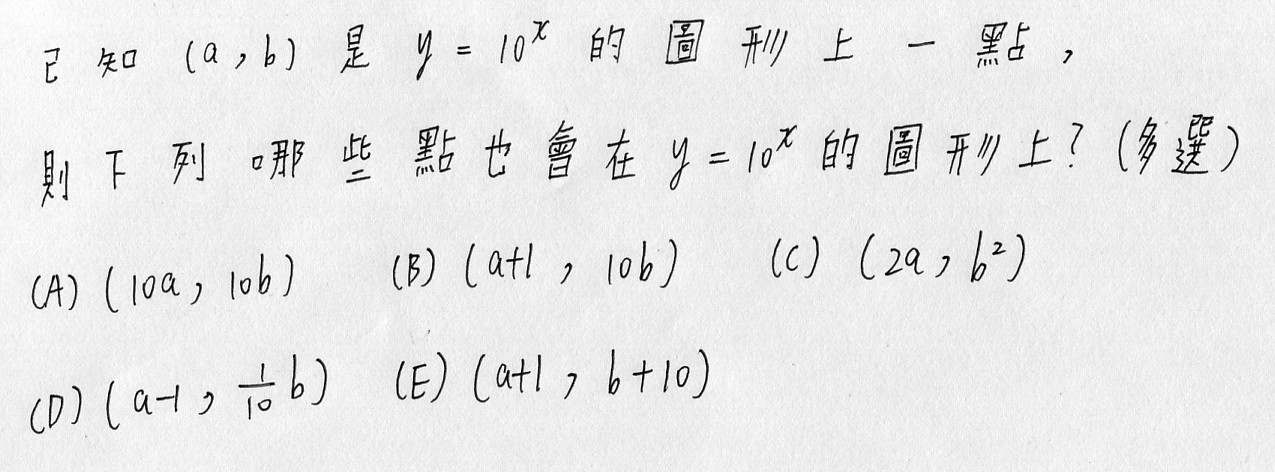 已知 (a,b) 是 y = 10ˣ 的圖形上一點,
則下列哪些點也會在 y = 10ˣ 的圖形上? (多選)
(A) (10a, 10b) (B) (a+1, 10b) (C) (2a, b²)
(D) (a-1, 1/10 b) (E) (a+1, b+10)